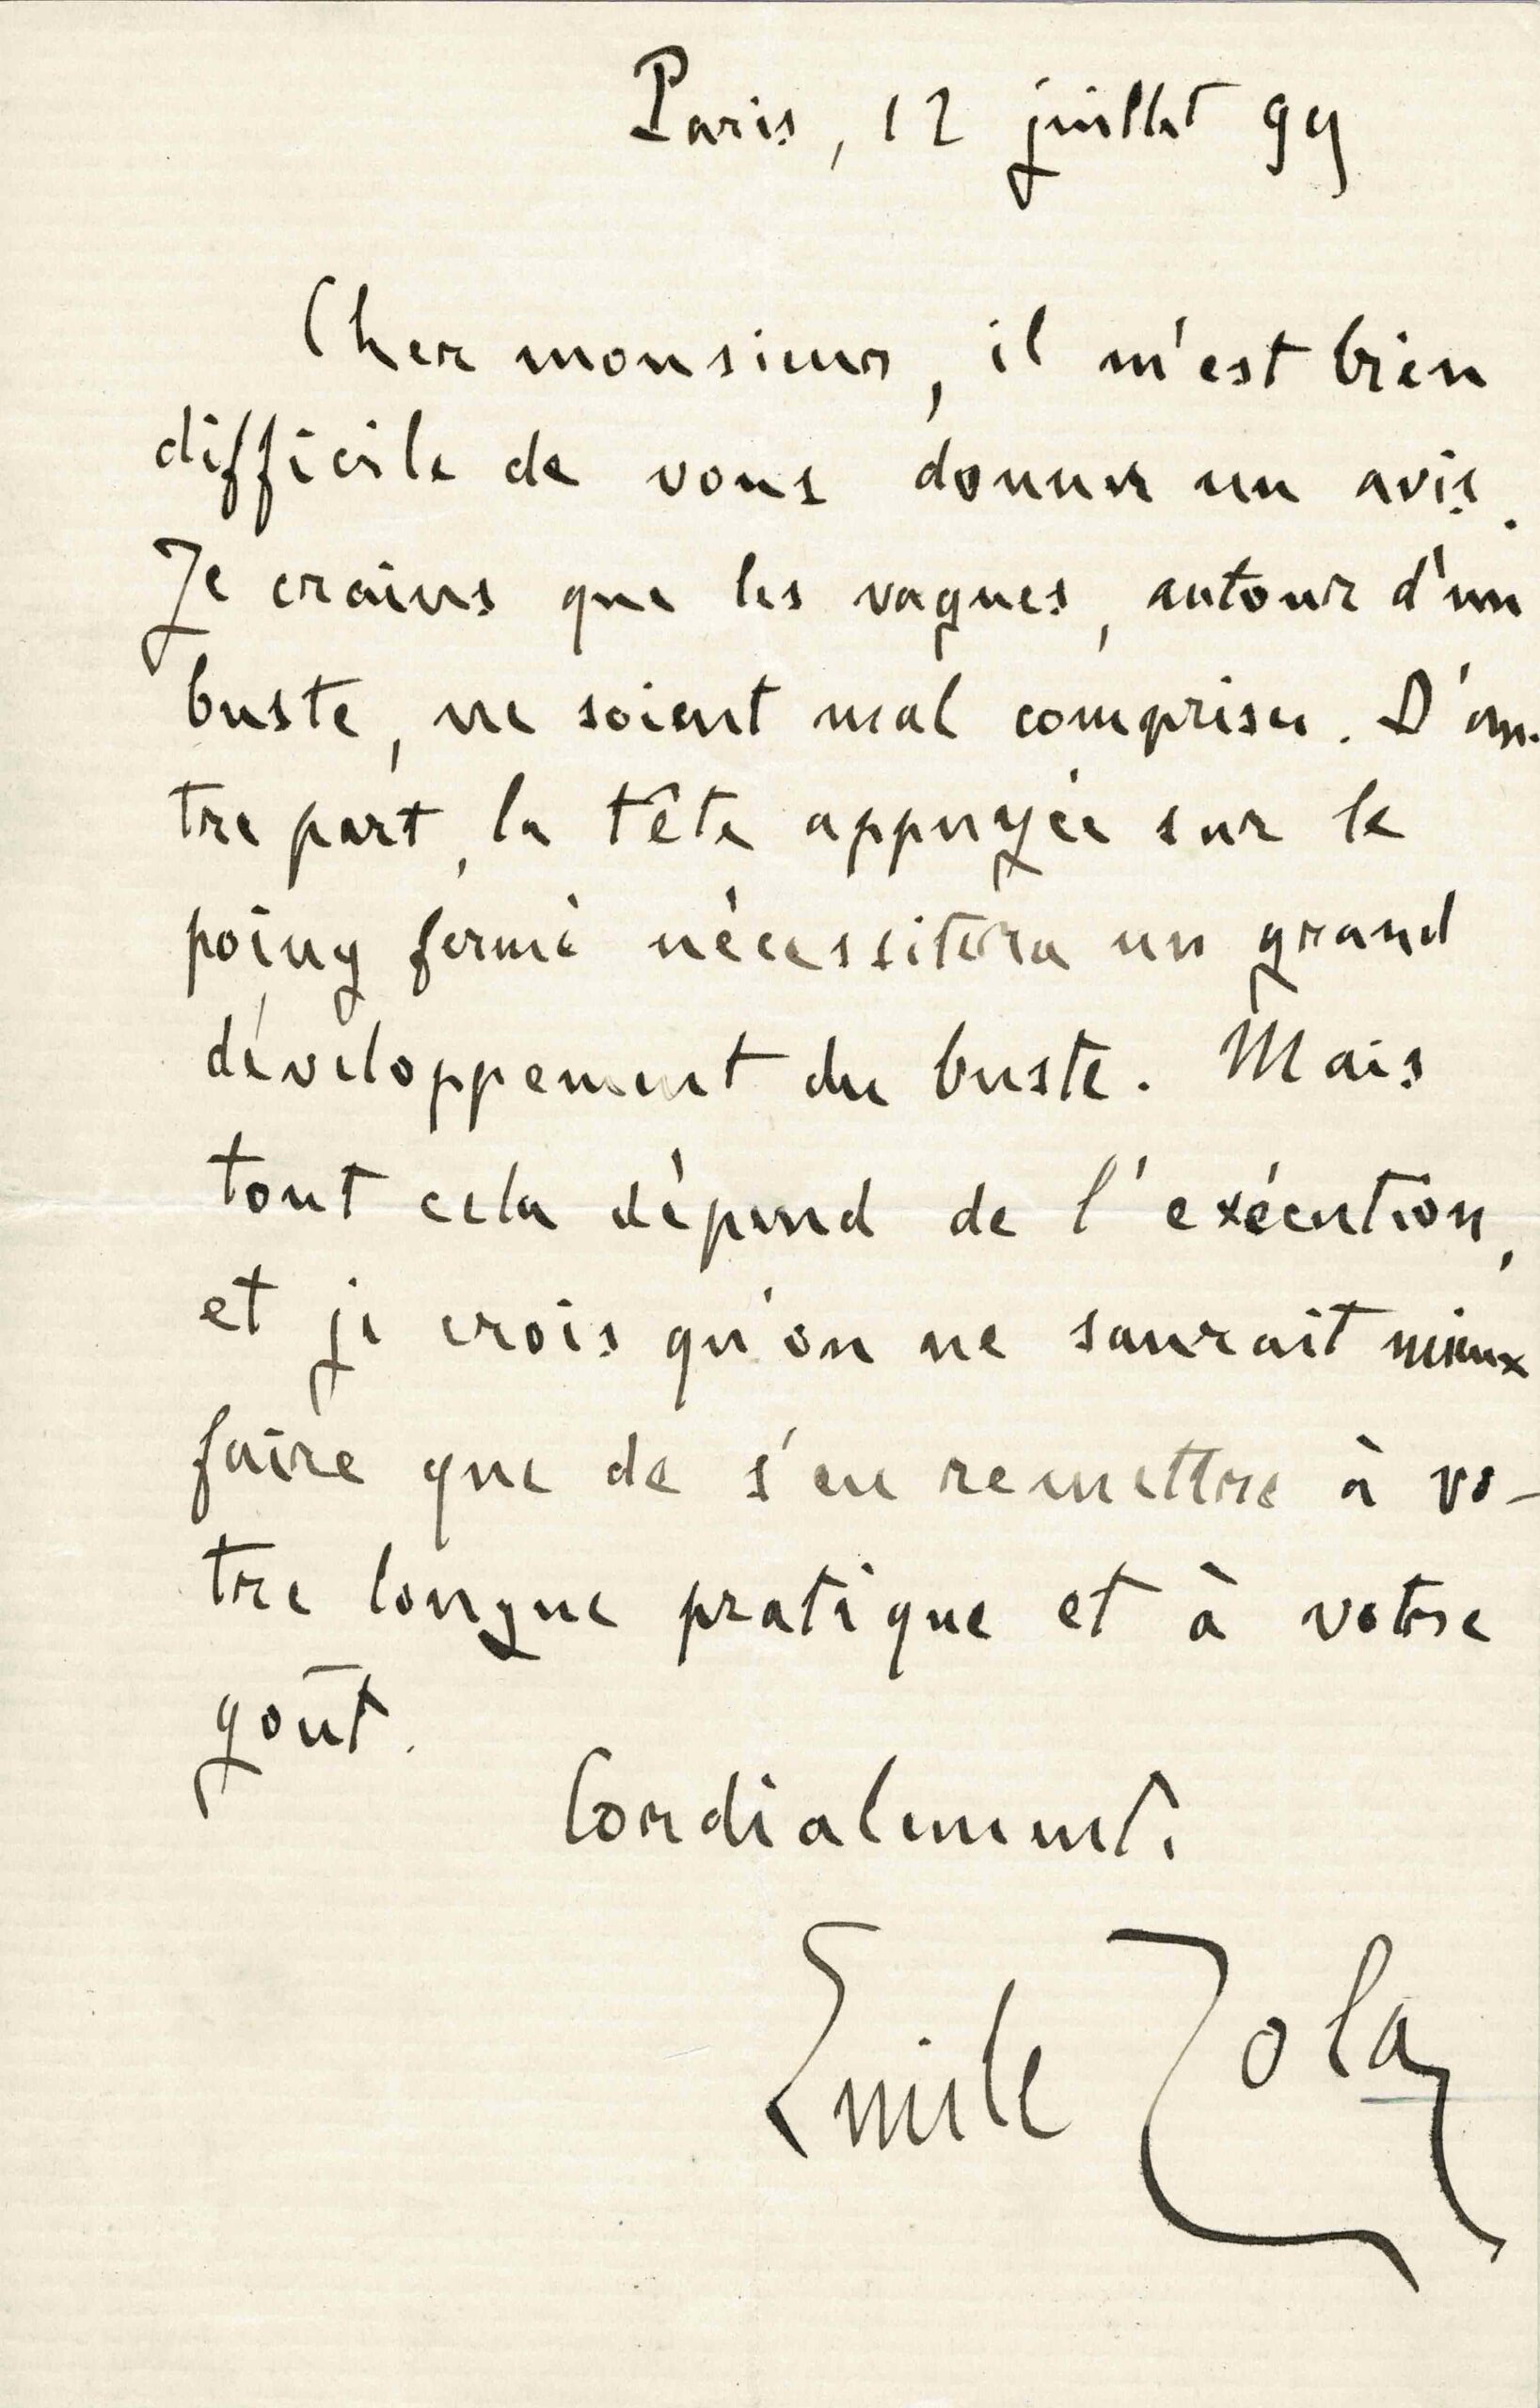 Paris, 12 juillet 99
Cher monsieur, il m'est bien
difficile de vous donner un avis.
Je crains que les vagues, autour d'un
buste, ne soient mal comprises. D'au-
tre part, la tête appuyée sur le
poing fermé nécessitera un grand
développement du buste. Mais
tout cela dépend de l'exécution,
et je crois qu'on ne saurait mieux
faire que de s'en remettre à vo-
tre longue pratique et à votre
goût.
Cordialement.
Emile Zola